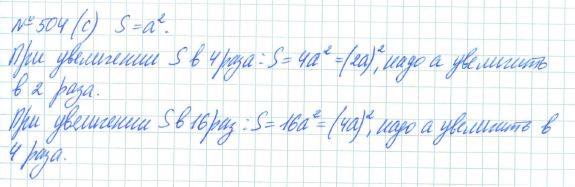 № 504 (с) S=a².
При увеличении S в 4 раза: S = 4a² = (2a)², надо a увеличить
в 2 раза.
При увеличении S в 16 раз: S = 16a² = (4a)², надо a увеличить в
4 раза.